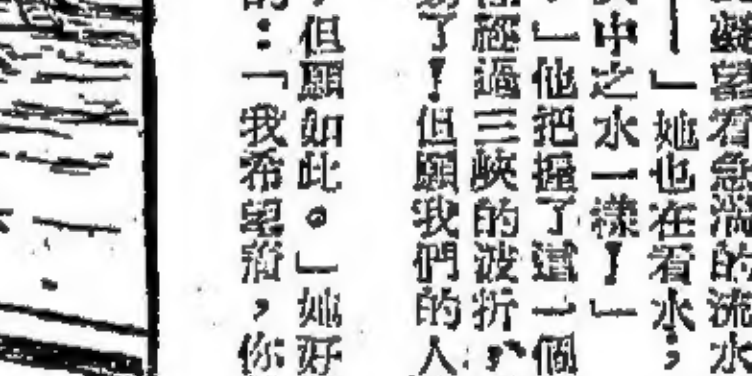 凝望着急湍的流水
—」她也在看水；
中之水一樣！」
。」他把握了這一個
經過三峽的波折，
了！但願我們的人
，但願如此。」她好
的：「我希望着，你